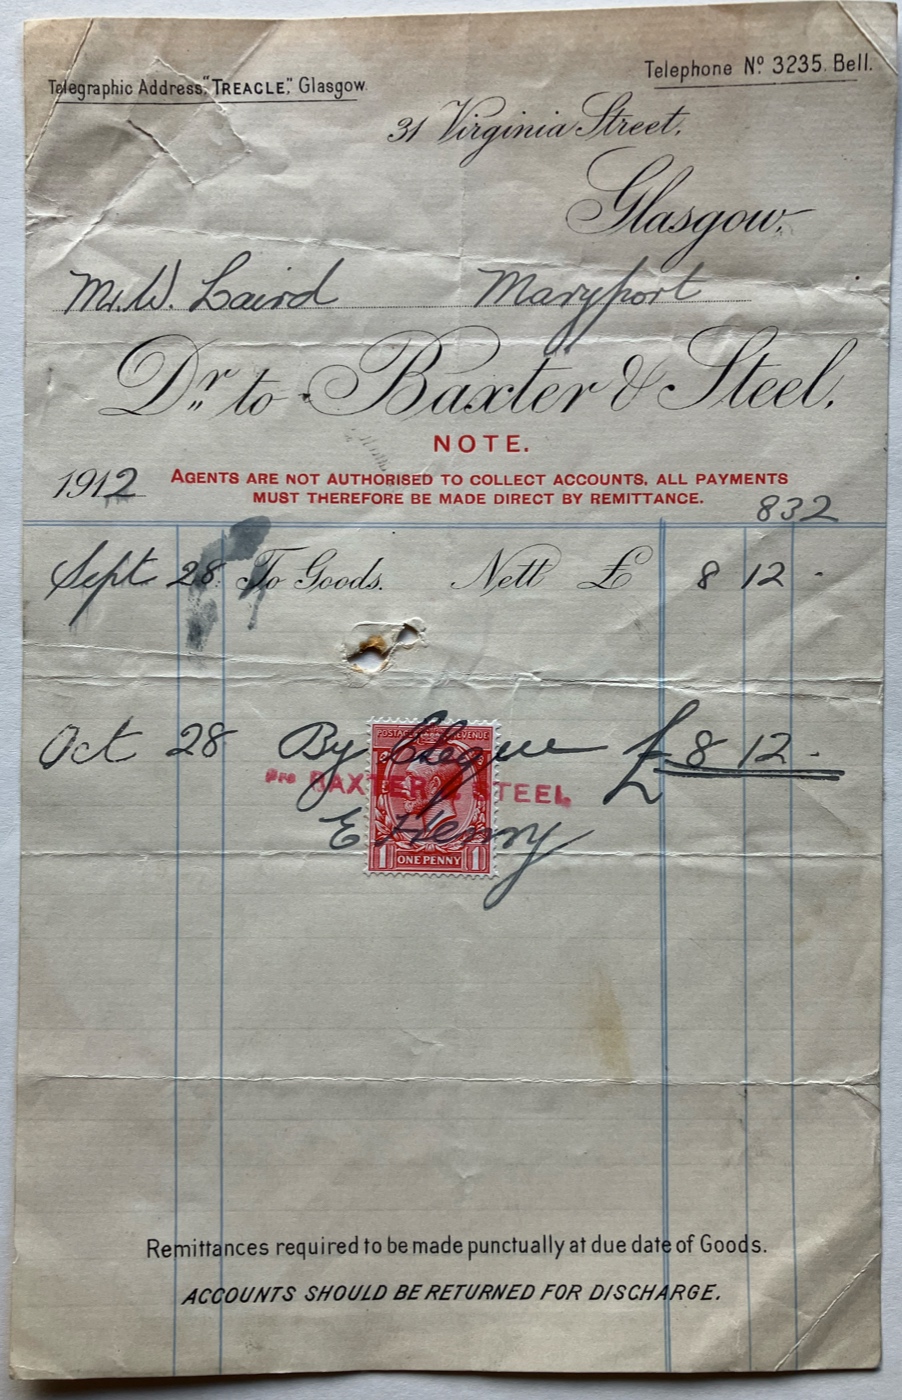 Telegraphic Address, "TREACLE," Glasgow.
Telephone Nº 3235. Bell.
31 Virginia Street,
Glasgow,
Mr. W. Laird Maryport
Dr. to Baxter & Steel.
NOTE.
1912 AGENTS ARE NOT AUTHORISED TO COLLECT ACCOUNTS, ALL PAYMENTS
MUST THEREFORE BE MADE DIRECT BY REMITTANCE.
832
Sept 28 To Goods. Nett £ 8 12 -
POSTAGE REVENUE
Oct 28 By Cheque £ 8 12 -
Pro BAXTER & STEEL
E Henry
1 ONE PENNY 1
Remittances required to be made punctually at due date of Goods.
ACCOUNTS SHOULD BE RETURNED FOR DISCHARGE.